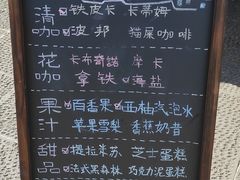 清咖 铁皮卡 卡蒂姆
波邦 猫屎咖啡
花咖 卡布奇诺 岸卡
拿铁 海盐
果汁 百香果 西柚汽泡水
苹果雪梨 香蕉奶昔
甜品 提拉米苏 芝士蛋糕
法式黑森林 巧克力泥蛋糕